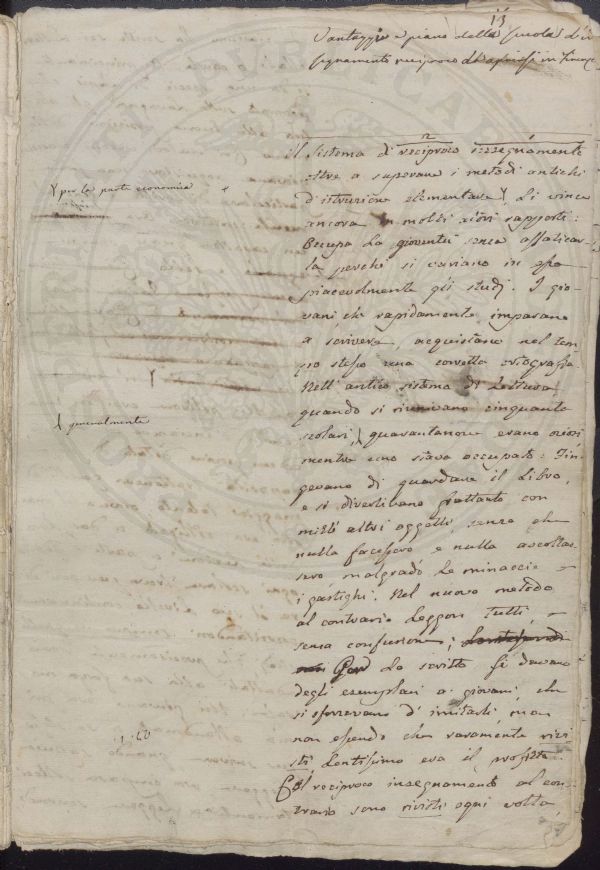 13
Vantaggio e piano della scuola d'in
segnamento reciproco in Firenze
Il sistema di reciproco insegnamento
oltre a superare i metodi antichi
per la parte economica
d'istruzione elementare, li vince
ancora in molti altri rapporti:
Occupa la gioventù senza affaticar
la perchè si variano in essa
piacevolmente gli studj. I gio
vani, che rapidamente imparano
a scrivere, acquistano nel tem
po stesso una corretta ortografia.
Nell'antico sistema di Lettura
quando si riunivano cinquanta
generalmente
scolari, quarantanove erano oziosi
mentre uno stava occupato: Fin
gevano di guardare il Libro,
e si divertivano frattanto con
mille altri oggetti, senza che
nulla facessero e nulla ascoltas
sero, malgrado le minaccie
i gastighi. Nel nuovo metodo
al contrario Leggon tutti,
senza confusione;
Per Lo scritto si davano
degli esemplari a' giovani, che
si sforzavano d'imitarli, ma
non essendo che raramente rivi
sti, Lentissimo era il profitto.
Col reciproco insegnamento al con
trario sono rivisti ogni volta